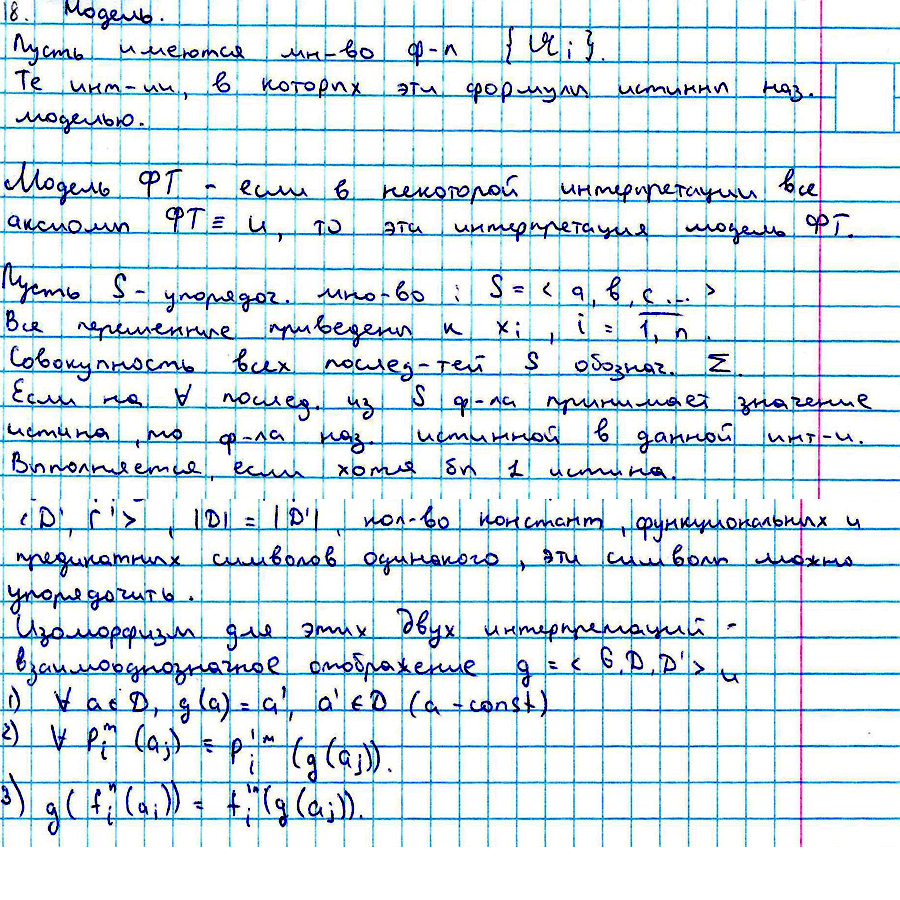 18. Модель.
Пусть имеются мн-во ф-л { 𝔄i }.
Те инт-ии, в которых эти формулы истинны наз.
моделью.
Модель ФТ - если в некоторой интерпретации все
аксиомы ФТ ≡ И, то эта интерпретация модель ФТ.
Пусть S - упорядоч. мно-во : S = < a, b, c ... >
Все переменные приведены к xi , i = 1, n .
Совокупность всех послед-тей S обознач. Σ.
Если на ∀ послед. из S ф-ла принимает значение
истина, то ф-ла наз. истинной в данной инт-и.
Выполняется, если хотя бы 1 истина.
< D', Г' > , |D| = |D'|, кол-во констант, функциональных и
предикатных символов одинакого, эти символы можно
упорядочить.
Изоморфизм для этих двух интерпретаций -
взаимооднозначное отображение g = < G, D, D' > и
1) ∀ a ∈ D, g(a) = a', a' ∈ D (a - const)
2) ∀ Pᵢᵐ (aj) ≡ P'ᵢᵐ (g(aj)).
3) g( fᵢⁿ(ai)) = f'ᵢⁿ(g(aj)).